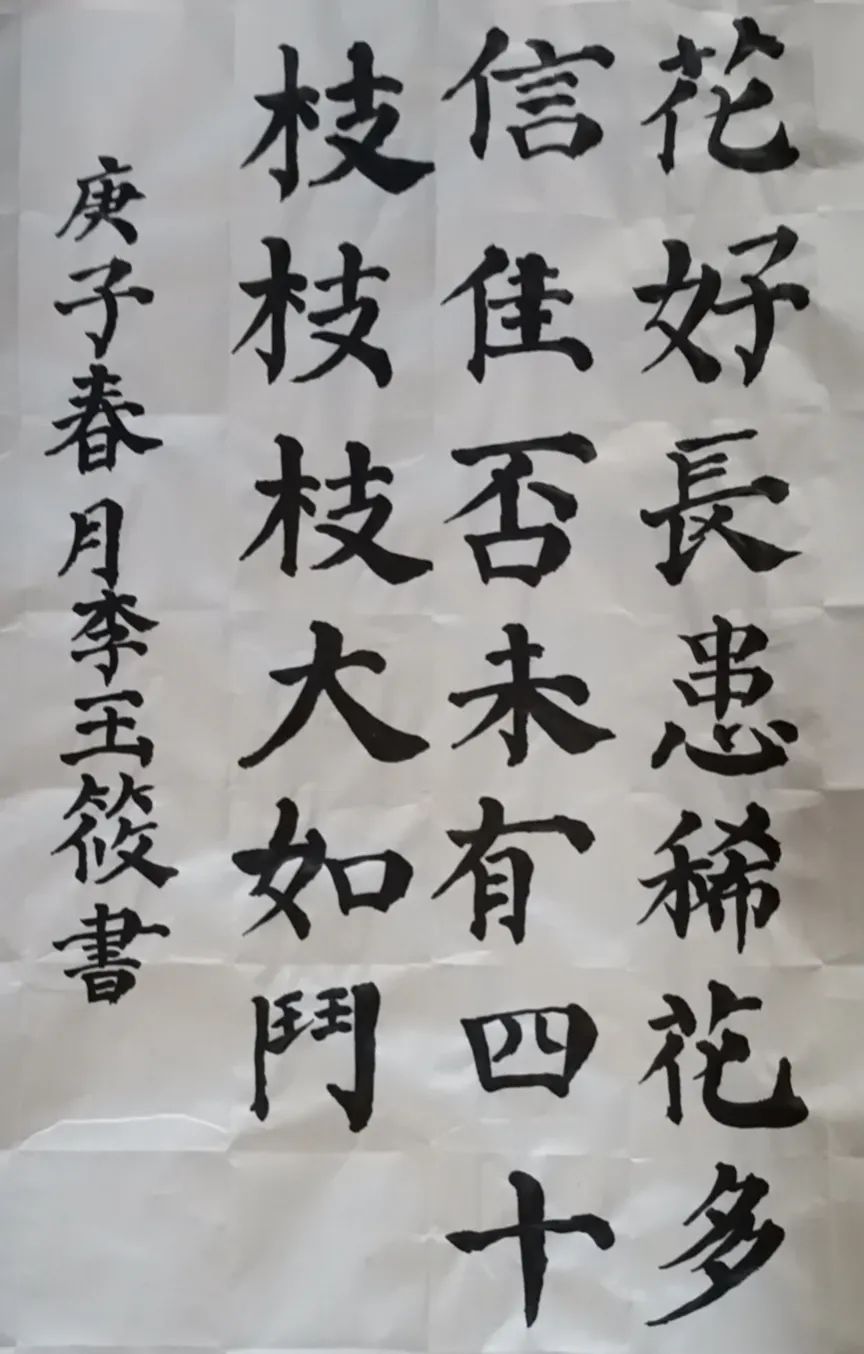 花好長患稀花多
信佳否未有四十
枝枝枝大如鬥
庚子春月李玉筱書